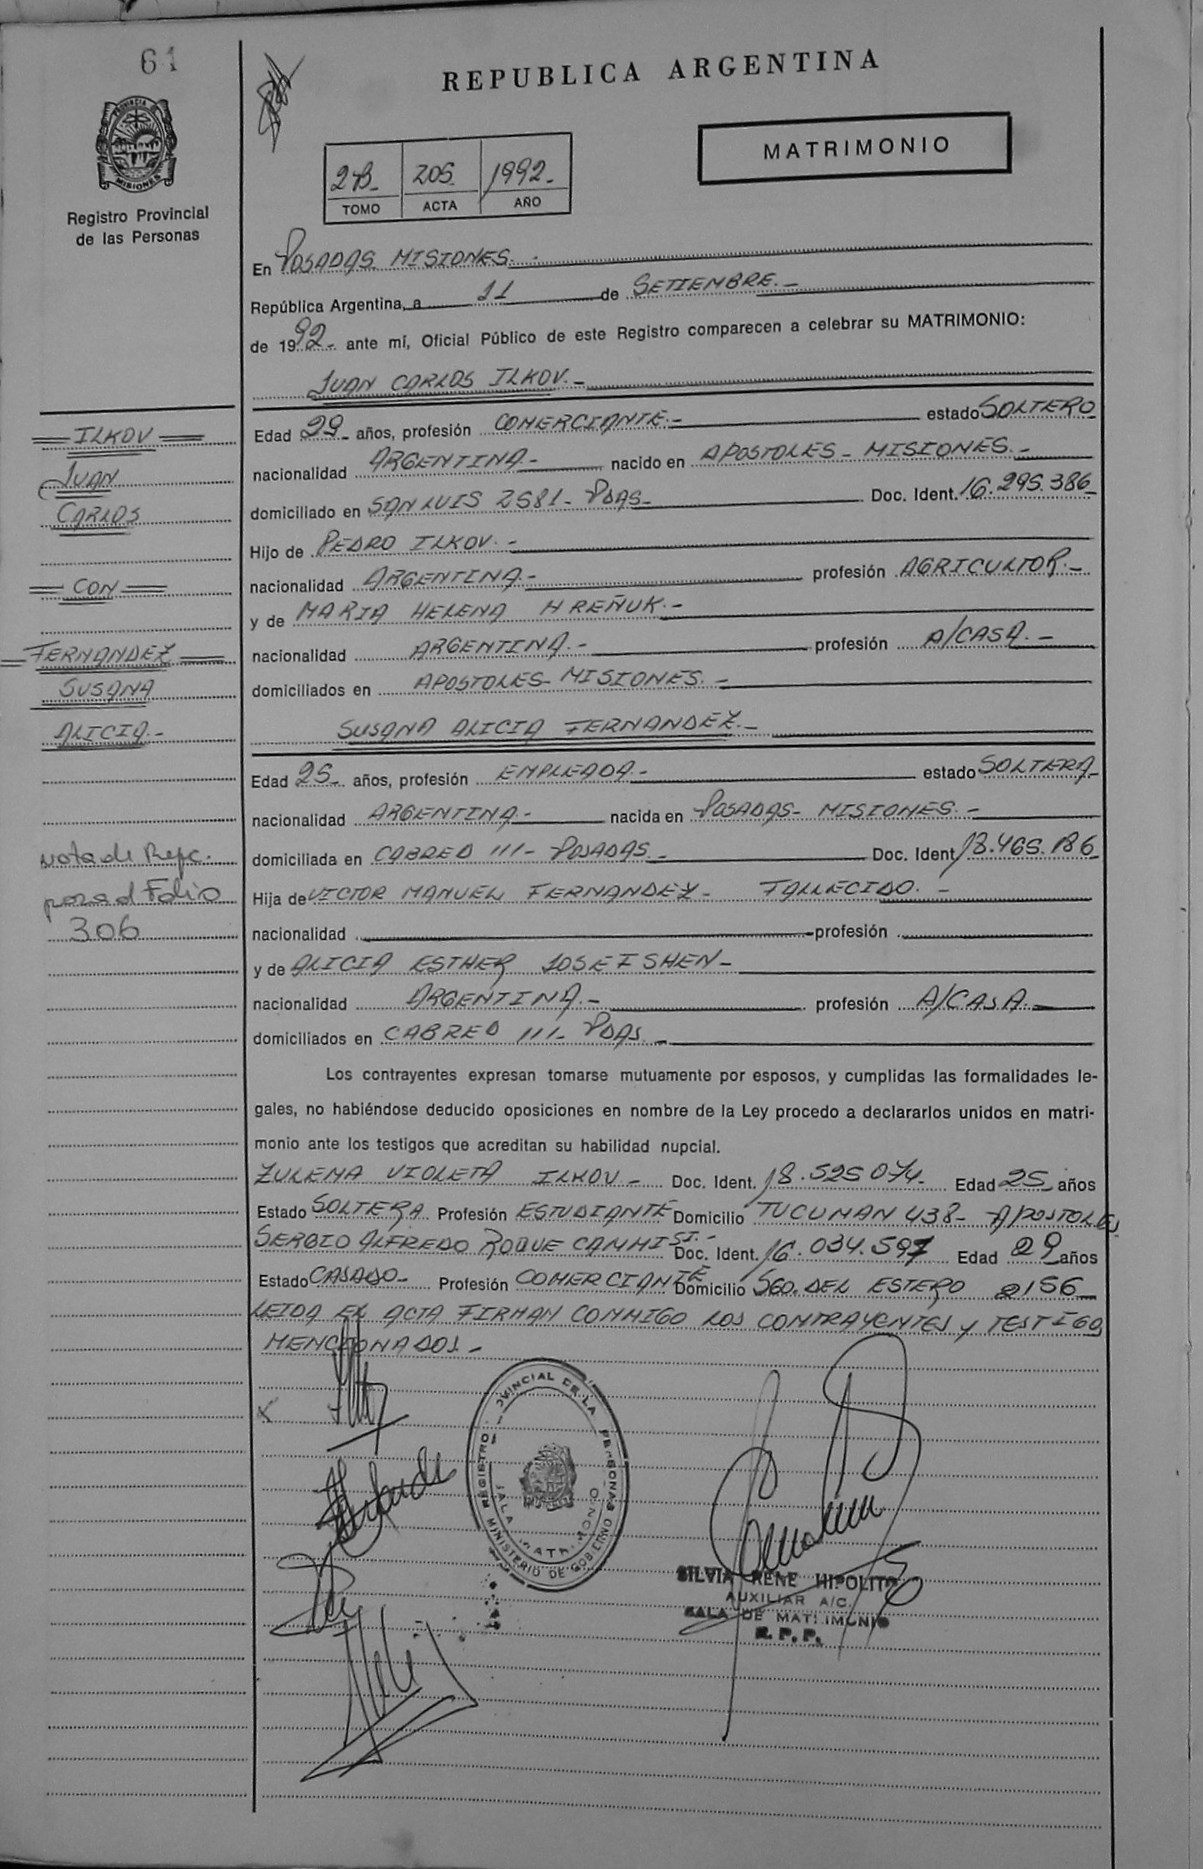 61
REPUBLICA ARGENTINA
PROVINCIA DE MISIONES
MATRIMONIO
2B- 205 1992-
TOMO ACTA AÑO
Registro Provincial
de las Personas
En POSADAS MISIONES.
República Argentina, a 11 de SETIEMBRE.-
de 1992- ante mí, Oficial Público de este Registro comparecen a celebrar su MATRIMONIO:
JUAN CARLOS ILKOV.-
Edad 29- años, profesión COMERCIANTE.- estado SOLTERO
nacionalidad ARGENTINA- nacido en APOSTOLES- MISIONES.-
domiciliado en SAN LUIS 2581- PDAS- Doc. Ident. 16.295.386
Hijo de PEDRO ILKOV.-
nacionalidad ARGENTINA- profesión AGRICULTOR.-
y de MARIA HELENA HREÑUK.-
nacionalidad ARGENTINA.- profesión A/CASA.-
domiciliados en APOSTOLES- MISIONES.-
ILKOV
JUAN
CARLOS
CON
FERNANDEZ
SUSANA
ALICIA.-
SUSANA ALICIA FERNANDEZ.-
Edad 25- años, profesión EMPLEADA- estado SOLTERA-
nacionalidad ARGENTINA.- nacida en POSADAS- MISIONES.-
domiciliada en CABRED 111- POSADAS.- Doc. Ident. 18.465.186
Hija de VICTOR MANUEL FERNANDEZ- FALLECIDO.-
nacionalidad profesión
y de ALICIA ESTHER JOSEFSHEN-
nacionalidad ARGENTINA.- profesión A/CASA.
domiciliados en CABRED 111- PDAS.-
nota de Refc.
pasa al Folio
306
Los contrayentes expresan tomarse mutuamente por esposos, y cumplidas las formalidades le-
gales, no habiéndose deducido oposiciones en nombre de la Ley procedo a declararlos unidos en matri-
monio ante los testigos que acreditan su habilidad nupcial.
ZULEMA VIOLETA ILKOV- Doc. Ident. 18.525.074- Edad 25- años
Estado SOLTERA Profesión ESTUDIANTE Domicilio TUCUMAN 438- APOSTOLES
SERGIO ALFREDO ROQUE CAMMISI.- Doc. Ident. 16.034.597 Edad 29 años
Estado CASADO- Profesión COMERCIANTE Domicilio SGO. DEL ESTERO 2156-
LEIDA EL ACTA FIRMAN CONMIGO LOS CONTRAYENTES y TESTIGO
MENCIONADOS-
REGISTRO PROVINCIAL DE LA PERSONAS
SALA MATRIMONIO
MINISTERIO DE GOBIERNO
SILVIA RENE HIPOLITO
AUXILIAR A/C.
SALA DE MATRIMONIO
R. P. P.